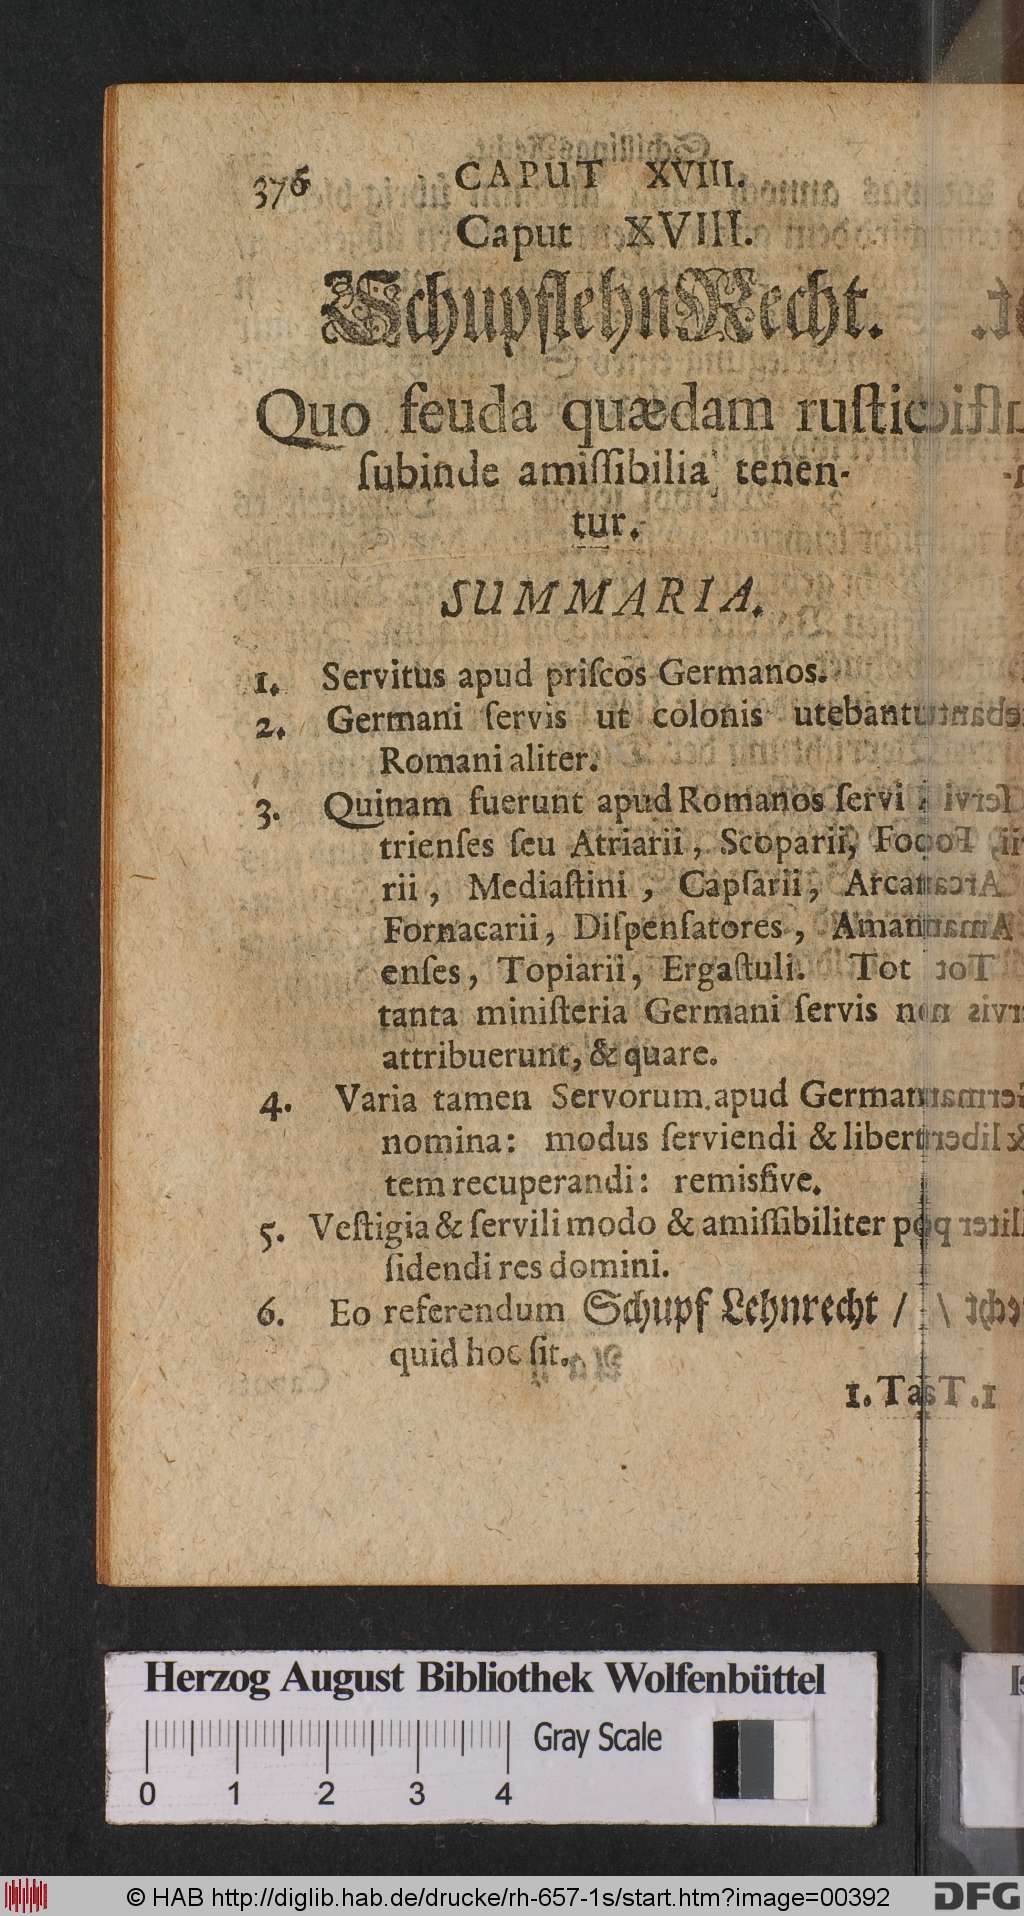 376 CAPUT XVIII.
Caput XVIII.
SchupflehnRecht.
Quo feuda quædam ruſtic
ſubinde amiſſibilia tenen-
tur.
SUMMARIA.
1. Servitus apud priſcos Germanos.
2. Germani ſervis ut colonis utebantu
Romani aliter.
3. Quinam fuerunt apud Romanos ſervi
trienſes ſeu Atriarii, Scoparii, Foc
rii, Mediaſtini, Capſarii, Arca
Fornacarii, Diſpenſatores, Aman
enſes, Topiarii, Ergaſtuli. Tot
tanta miniſteria Germani ſervis non
attribuerunt, & quare.
4. Varia tamen Servorum apud German
nomina: modus ſerviendi & libert
tem recuperandi: remisſive.
5. Veſtigia & ſervili modo & amiſſibiliter po
ſidendi res domini.
6. Eo referendum Schupf Lehnrecht /
quid hoc ſit.
1. Ta
Herzog August Bibliothek Wolfenbüttel
Gray Scale
0 1 2 3 4
© HAB http://diglib.hab.de/drucke/rh-657-1s/start.htm?image=00392
DFG